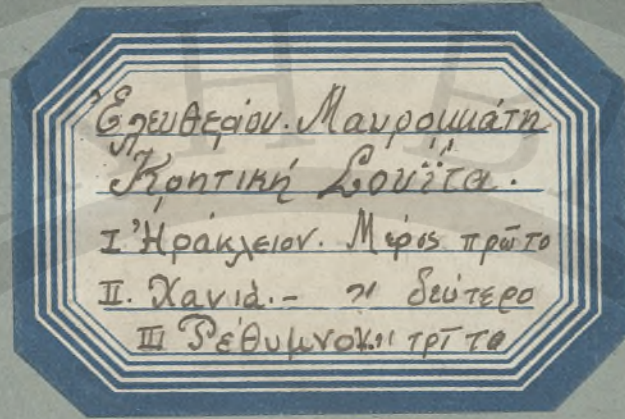 Ἐλευθερίου. Μαυρομμάτη
Κρητική Σουΐτα.
I Ἡράκλειον. Μέρος πρῶτο
II. Χανιά. - 〃 δεύτερο
III Ρέθυμνον. 〃 τρίτο